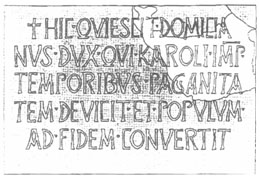 ✝HIC·QVIESCIT·DOMICIA
NVS·DVX·QVI·KAROLI·IMP·
TEMPORIBVS·PAGANITA
TEM·DEVICIT·ET·POPVLVM
AD·FIDEM·CONVERTIT